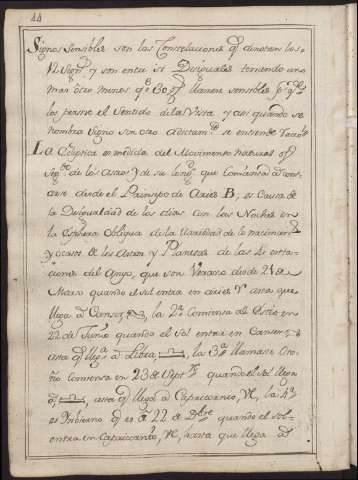 44
Signos Sensibles son las Constelaciones q̃ denotan los
12 Sig.s y son entre si Desiguales teniendo uno
mas otro menos q.e 30 g.s llamen sensibles p.r q.e
los persive el Sentido de la Vista, y asi quando se
nombra Signo con otro aditam.to se entiende
La Ecliptica es medida del Movimiento natural
Seg.do de los Astros y de su long.d que comiensa a contarse
desde el Principio de Aries B, es Causa de
la Desigualdad de los dias con las Noches en
la Esphera Obliqua de la Variedad de los nacimient.s
y ocasos de los Astros y Planetas de las 4 esta-
ciones del Anyo, que son Verano desde 21 de
Marzo quando el sol entra en aries ♈ asta que
llega a Canser, ♋, la 2.a Comiensa de Estio en
22 de Junio quando el Sol entra en Canser, ♋
asta q̃ llega a Libra, ♎, la 3.a llamase Oto-
ño comiensa en 23 de Sept.e quando el sol llega
a, ♎, asta q̃ llega a Capricornio, ♑, la 4.a
es Inbierno q̃ es a 22 de D.bre quando el Sol
entra en Capricornio, ♑, hasta que llega a